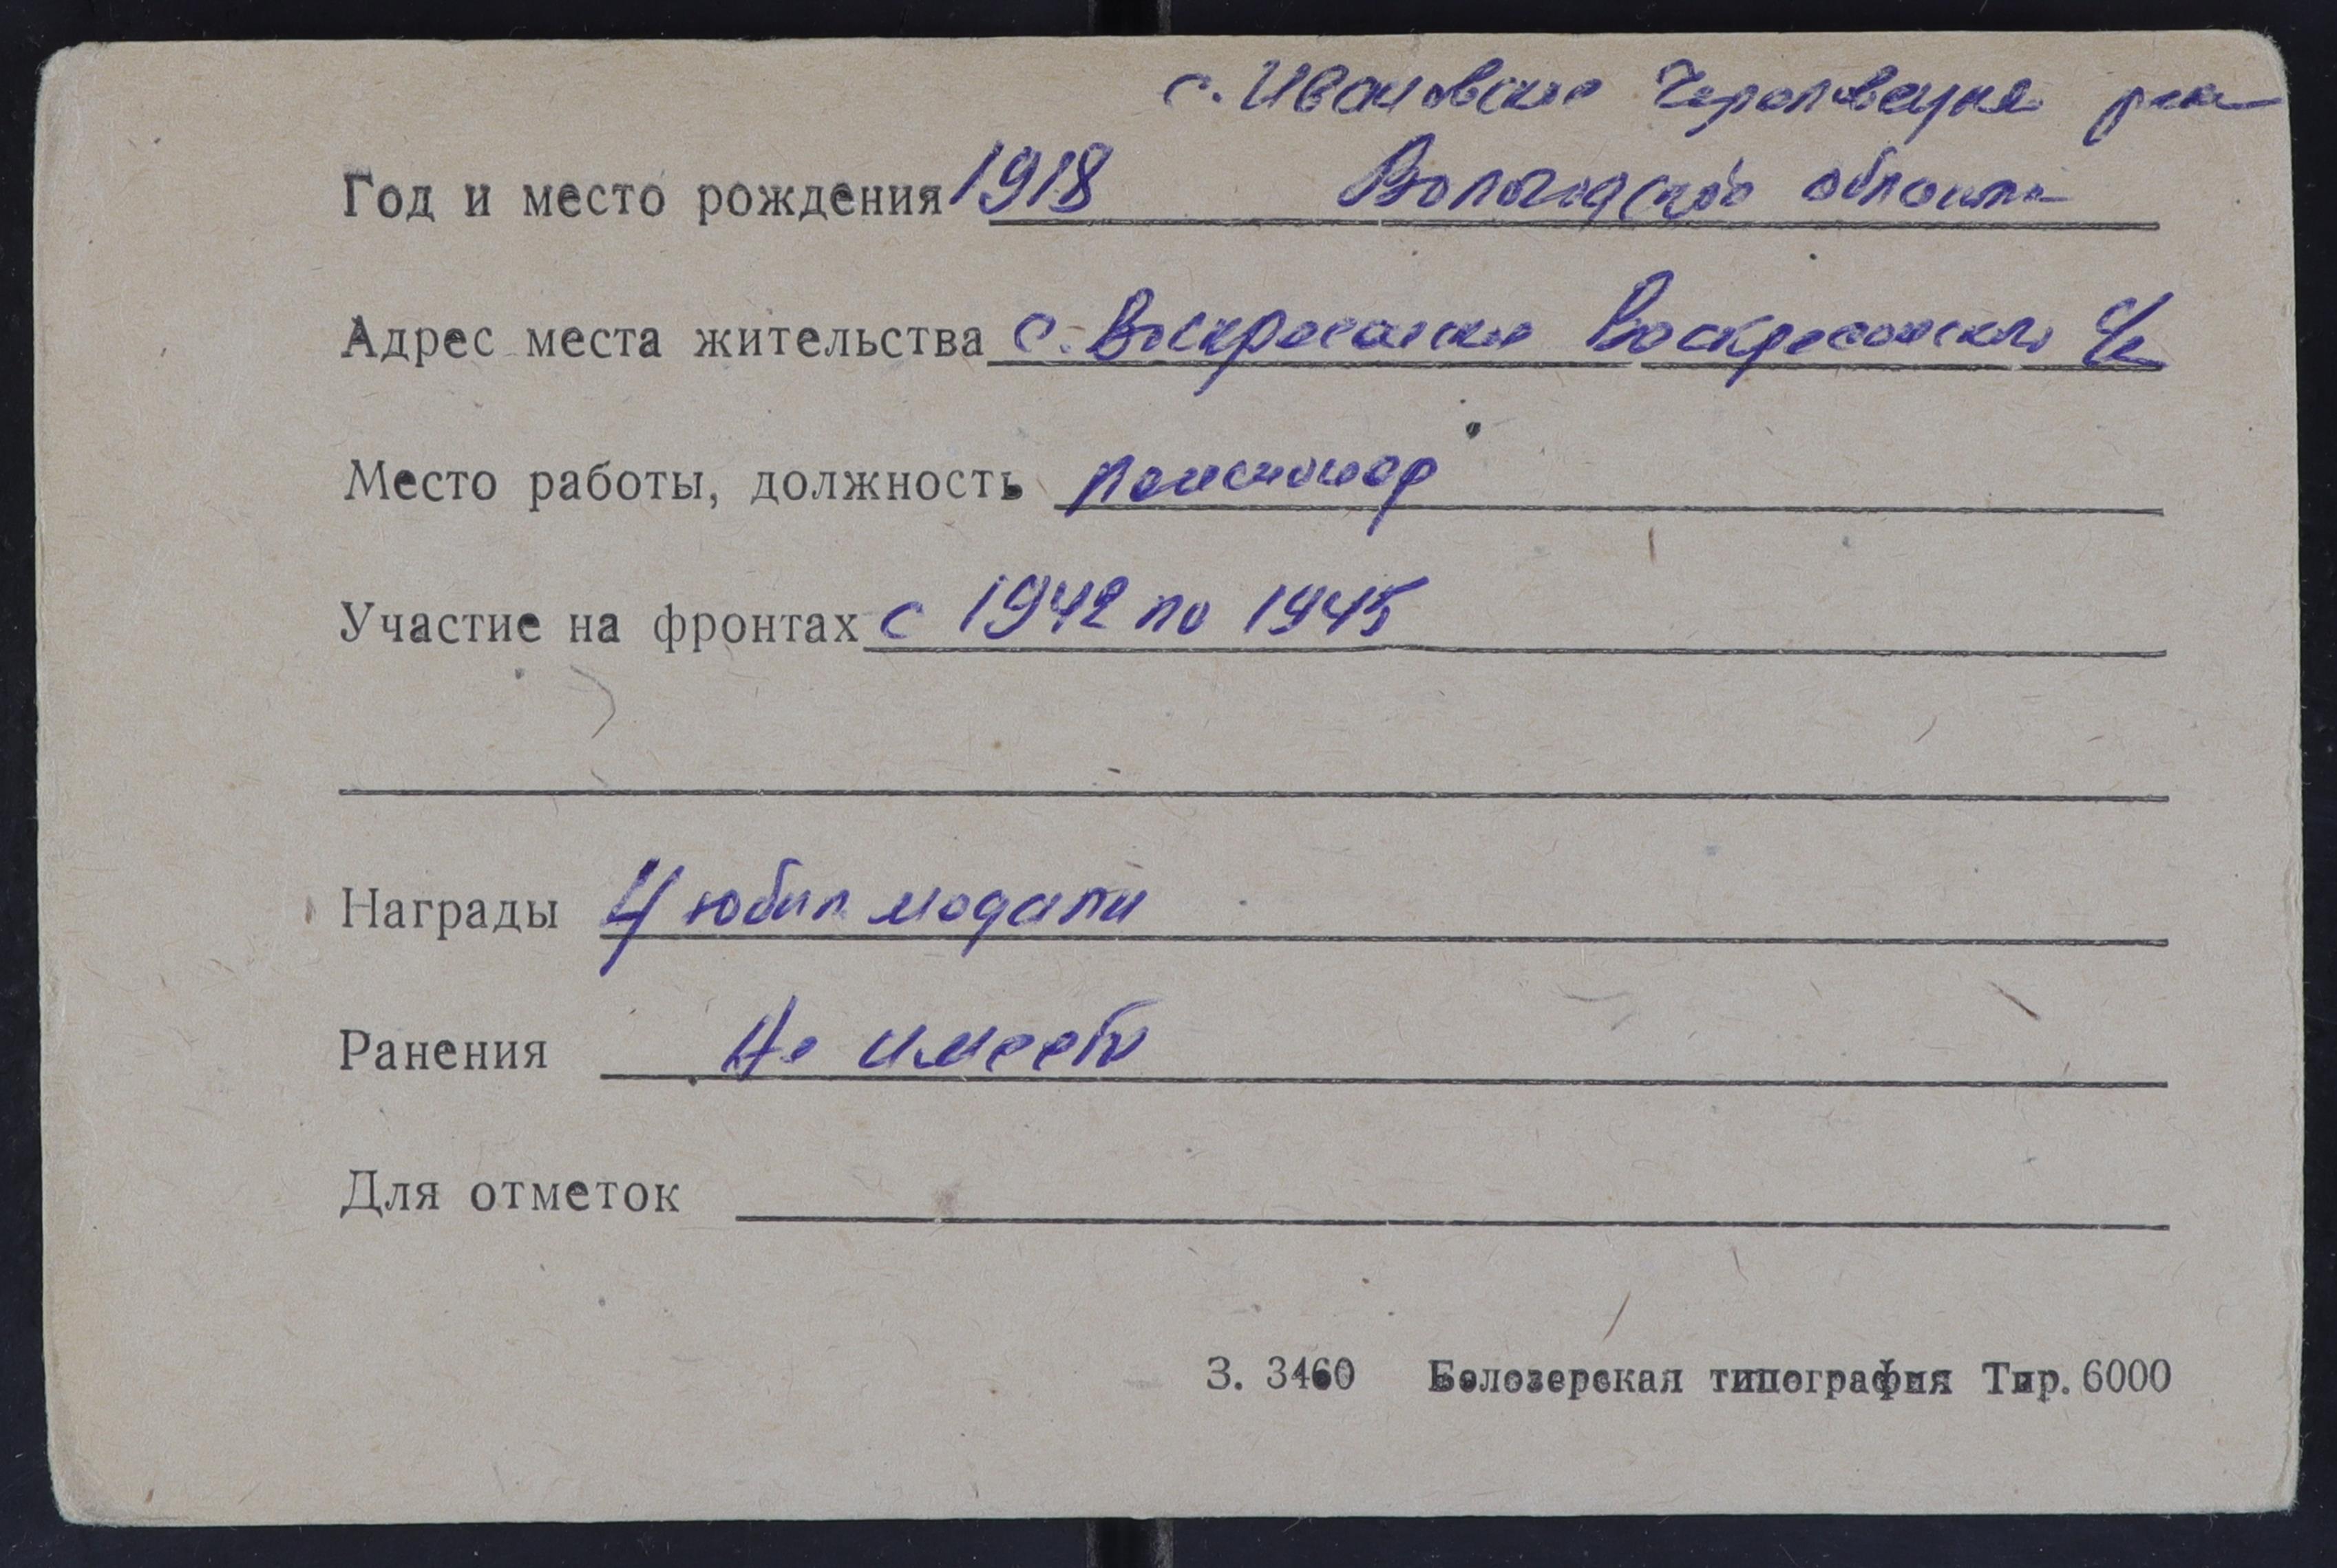 с. Ивановское Череповецкого р-на
Год и место рождения 1918 Вологодской области
Адрес места жительства с. Воскресенское Воскресенского с/с
Место работы, должность пенсионер
Участие на фронтах с 1942 по 1945
Награды 4 юбил. медали
Ранения Не имеет
Для отметок
З. 3460 Белозерская типография Тир. 6000